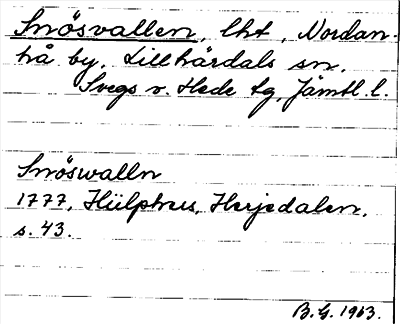 Snösvallen, lht, Nordan-
hå by, Lillhärdals sn,
Svegs o. Hede tg, Jämtl. l.
Snöswalln
1777, Hülphers, Herjedalen,
s. 43.
B.G. 1963.